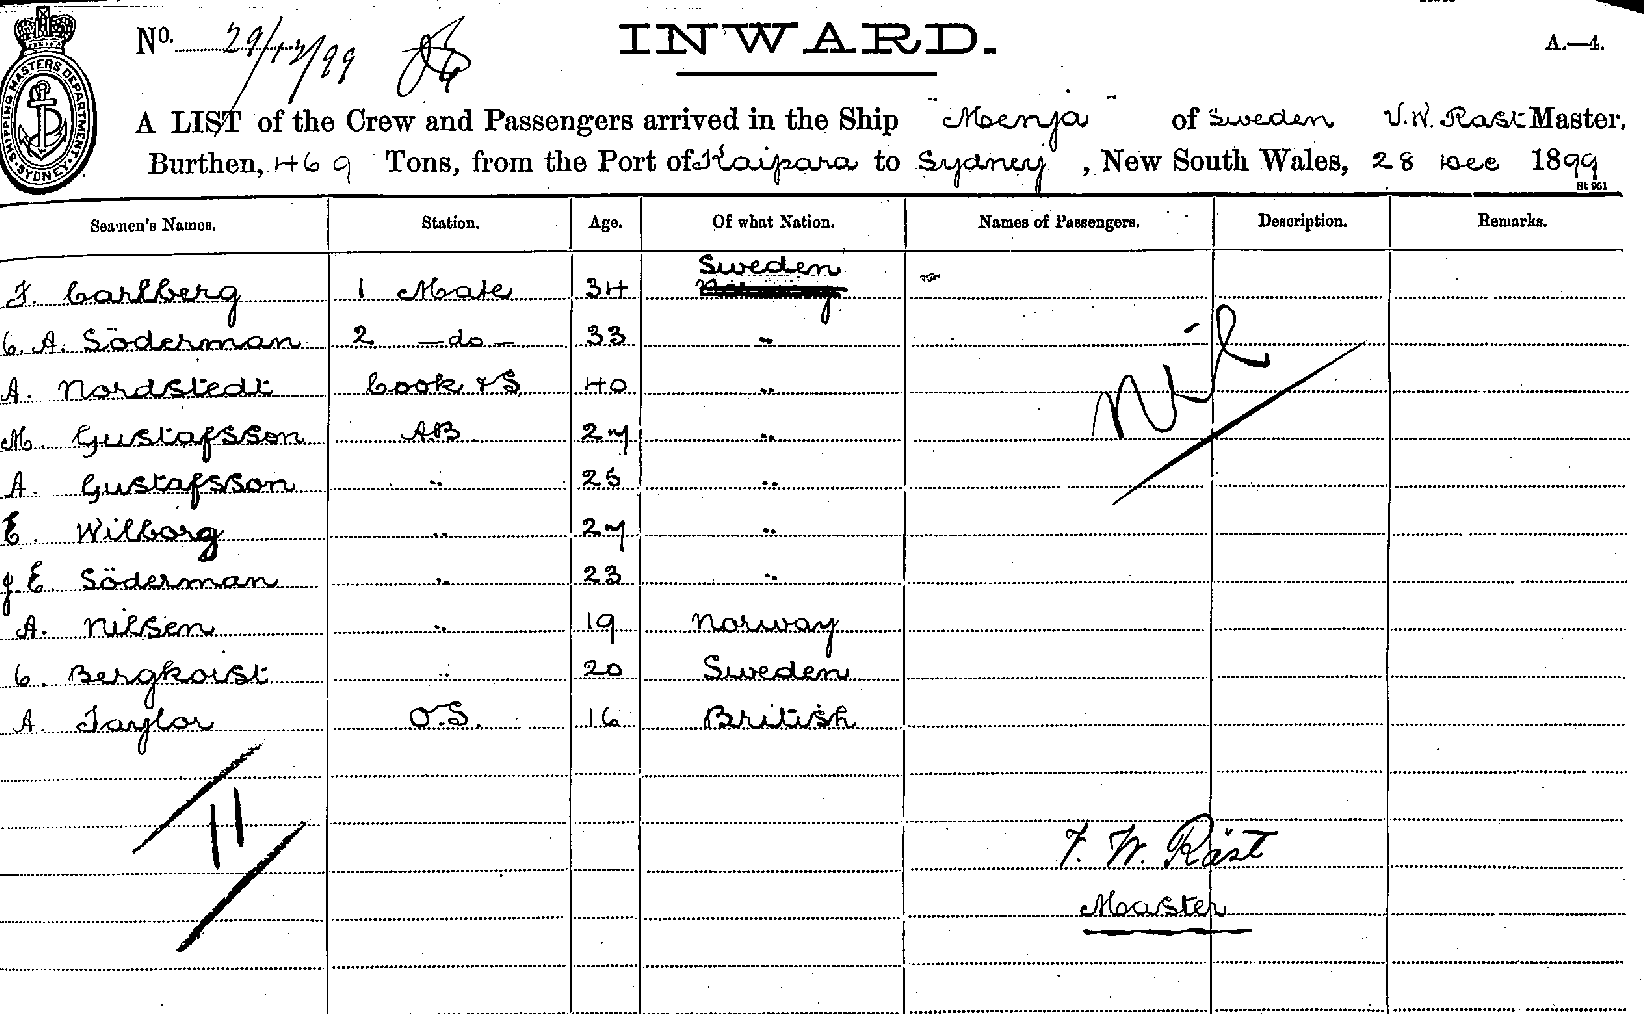 SHIPPING MASTERS DEPARTMENT. SYDNEY.
No. 29/12/99
INWARD.
A.—4.
A LIST of the Crew and Passengers arrived in the Ship "Menja" of Sweden V. W. Rast Master,
Burthen, 469 Tons, from the Port of Kaipara to Sydney, New South Wales, 28 Dec 1899
St 961
Seamen's Names. Station. Age. Of what Nation. Names of Passengers. Description. Remarks.
F. Carlberg 1 Mate 34 Sweden
C. A. Söderman 2 —do— 33 "
A. Nordstedt Cook & S. 40 "
M. Gustafsson AB 27 "
A. Gustafsson " 25 "
E. Wilborg " 27 "
J. E. Söderman " 23 "
A. Nilsen " 19 Norway
C. Bergkvist " 20 Sweden
A. Taylor O.S. 16 British
Nil
11
F. W. Räst
Master